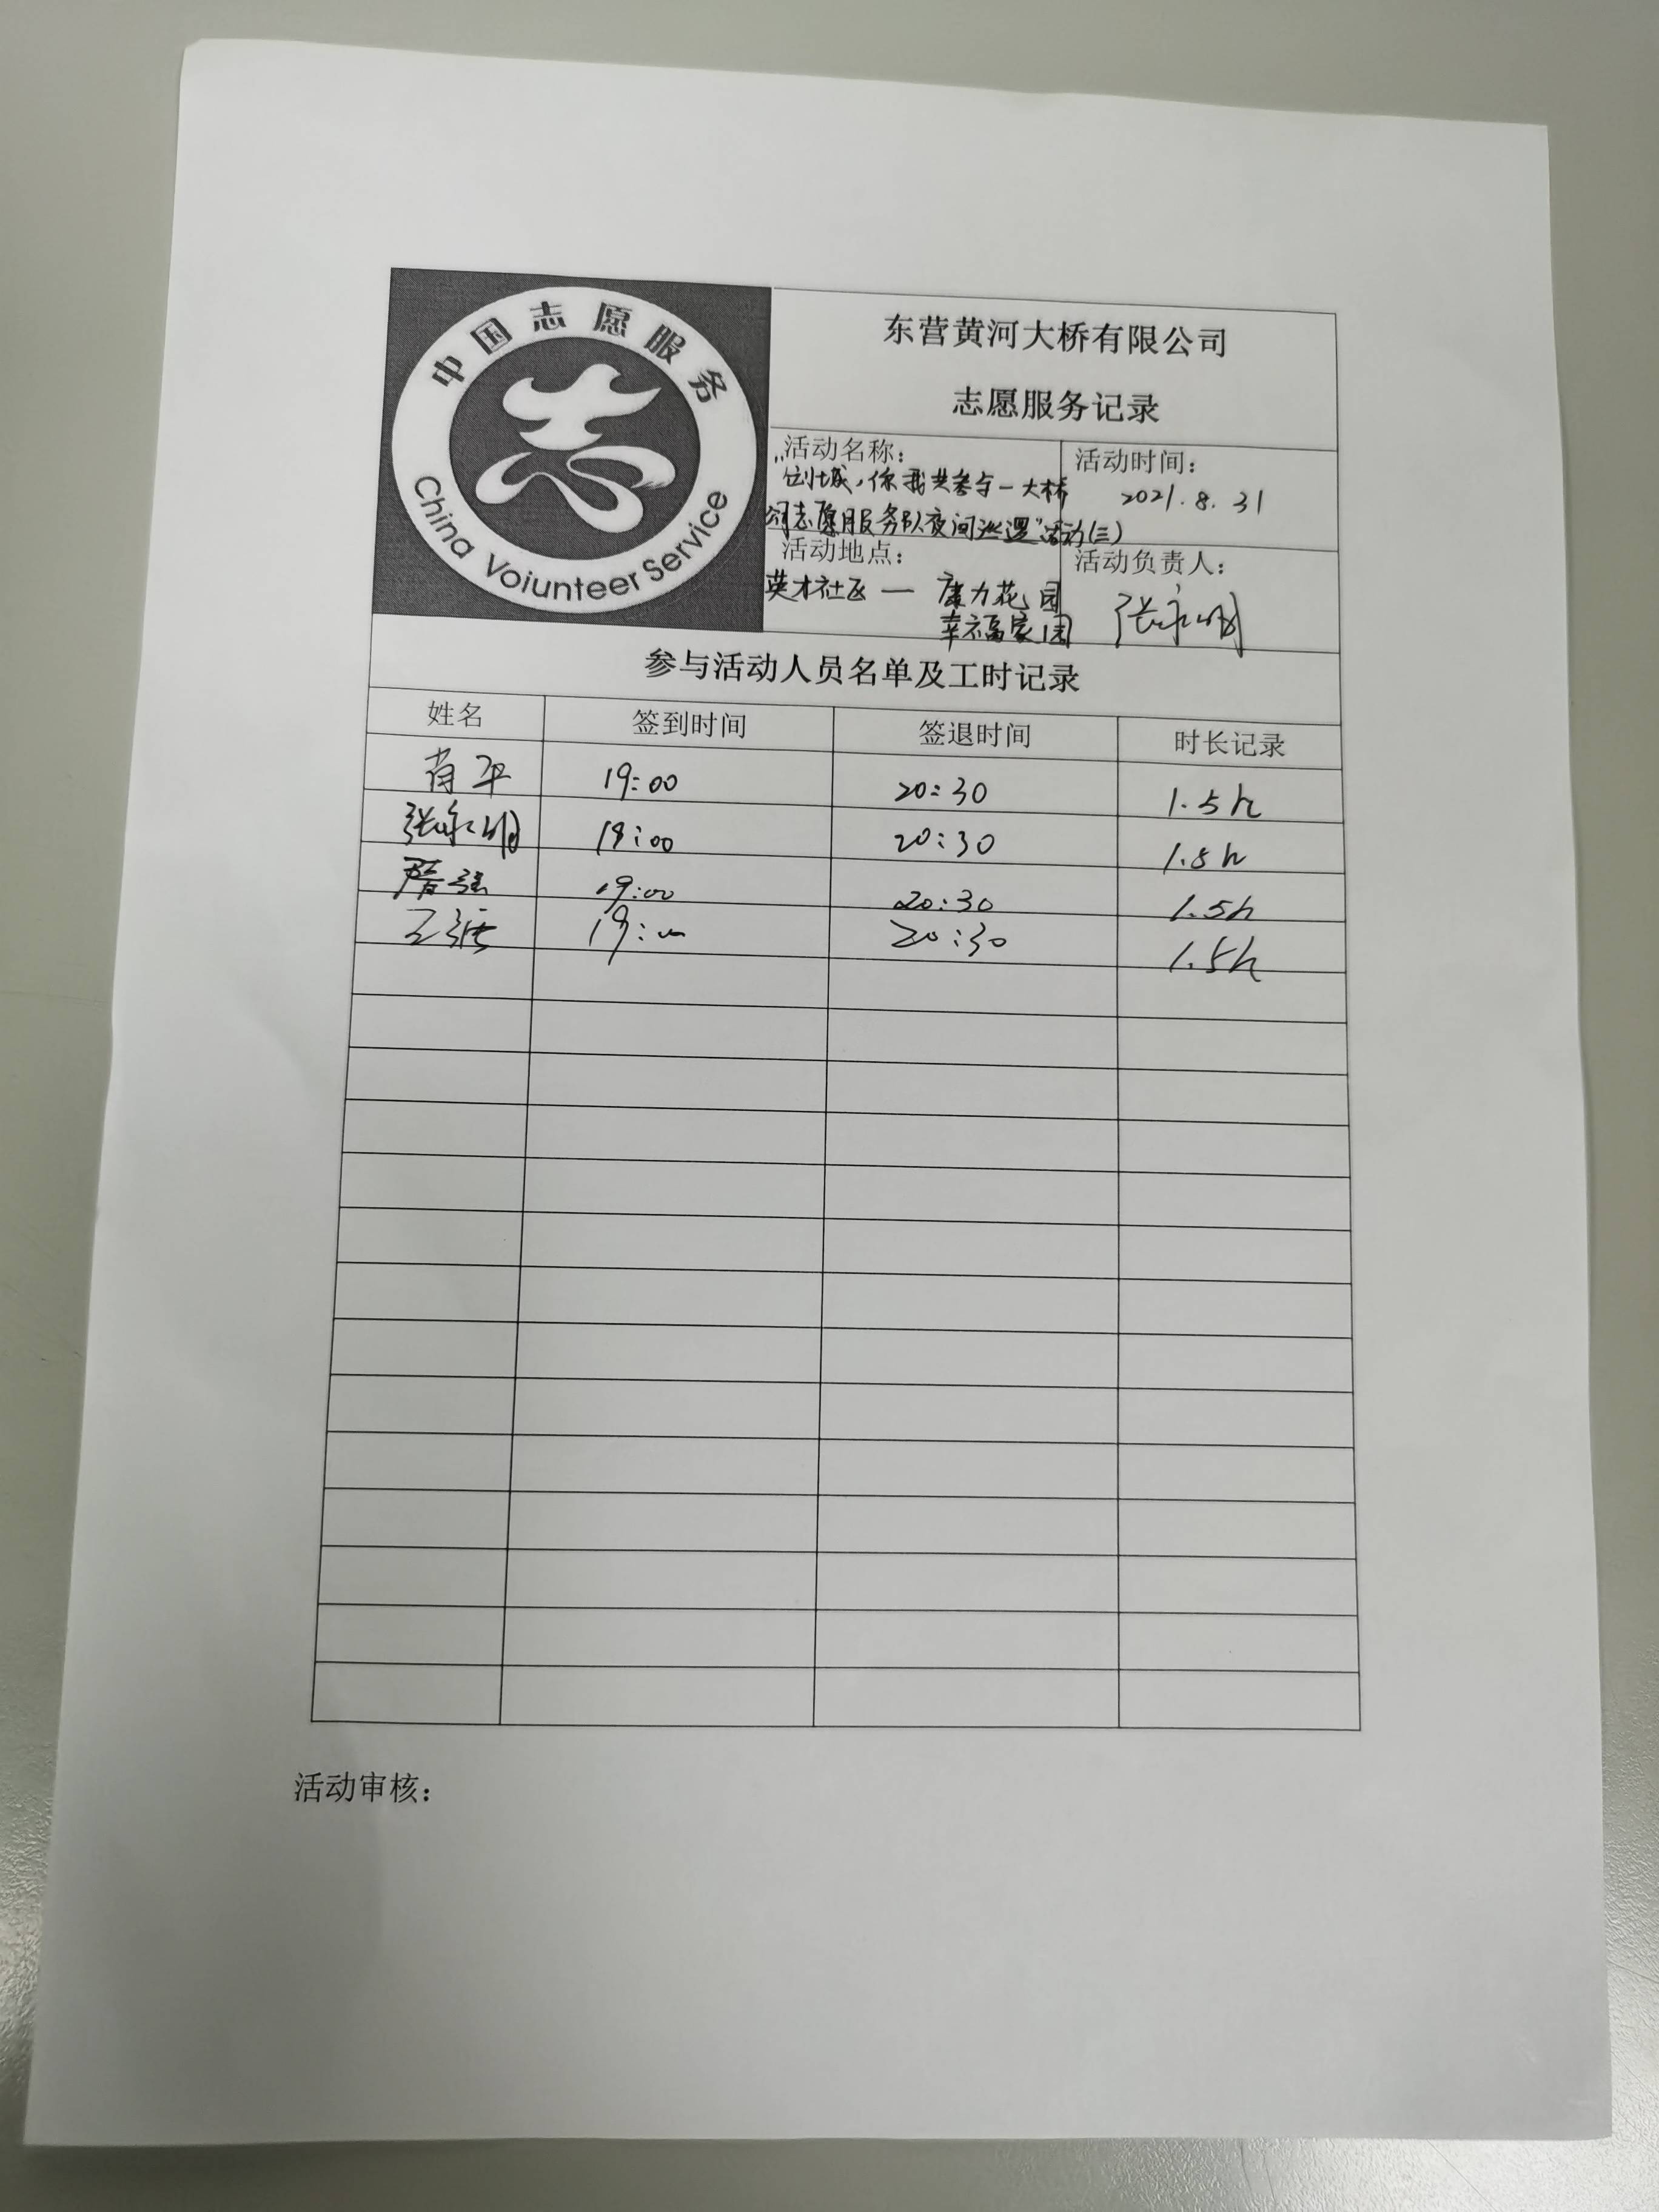 中国志愿服务
China Voiunteer Service
东营黄河大桥有限公司
志愿服务记录
活动名称：
"创城，你我共参与—大桥
公司志愿服务队夜间巡逻"活动(三)
活动时间：
2021.8.31
活动地点：
英才社区 — 康力花园
幸福家园
活动负责人：
张永明
参与活动人员名单及工时记录
姓名 签到时间 签退时间 时长记录
肖平 19:00 20:30 1.5h
张永明 19:00 20:30 1.5h
19:00 20:30 1.5h
王 19:00 20:30 1.5h
活动审核：